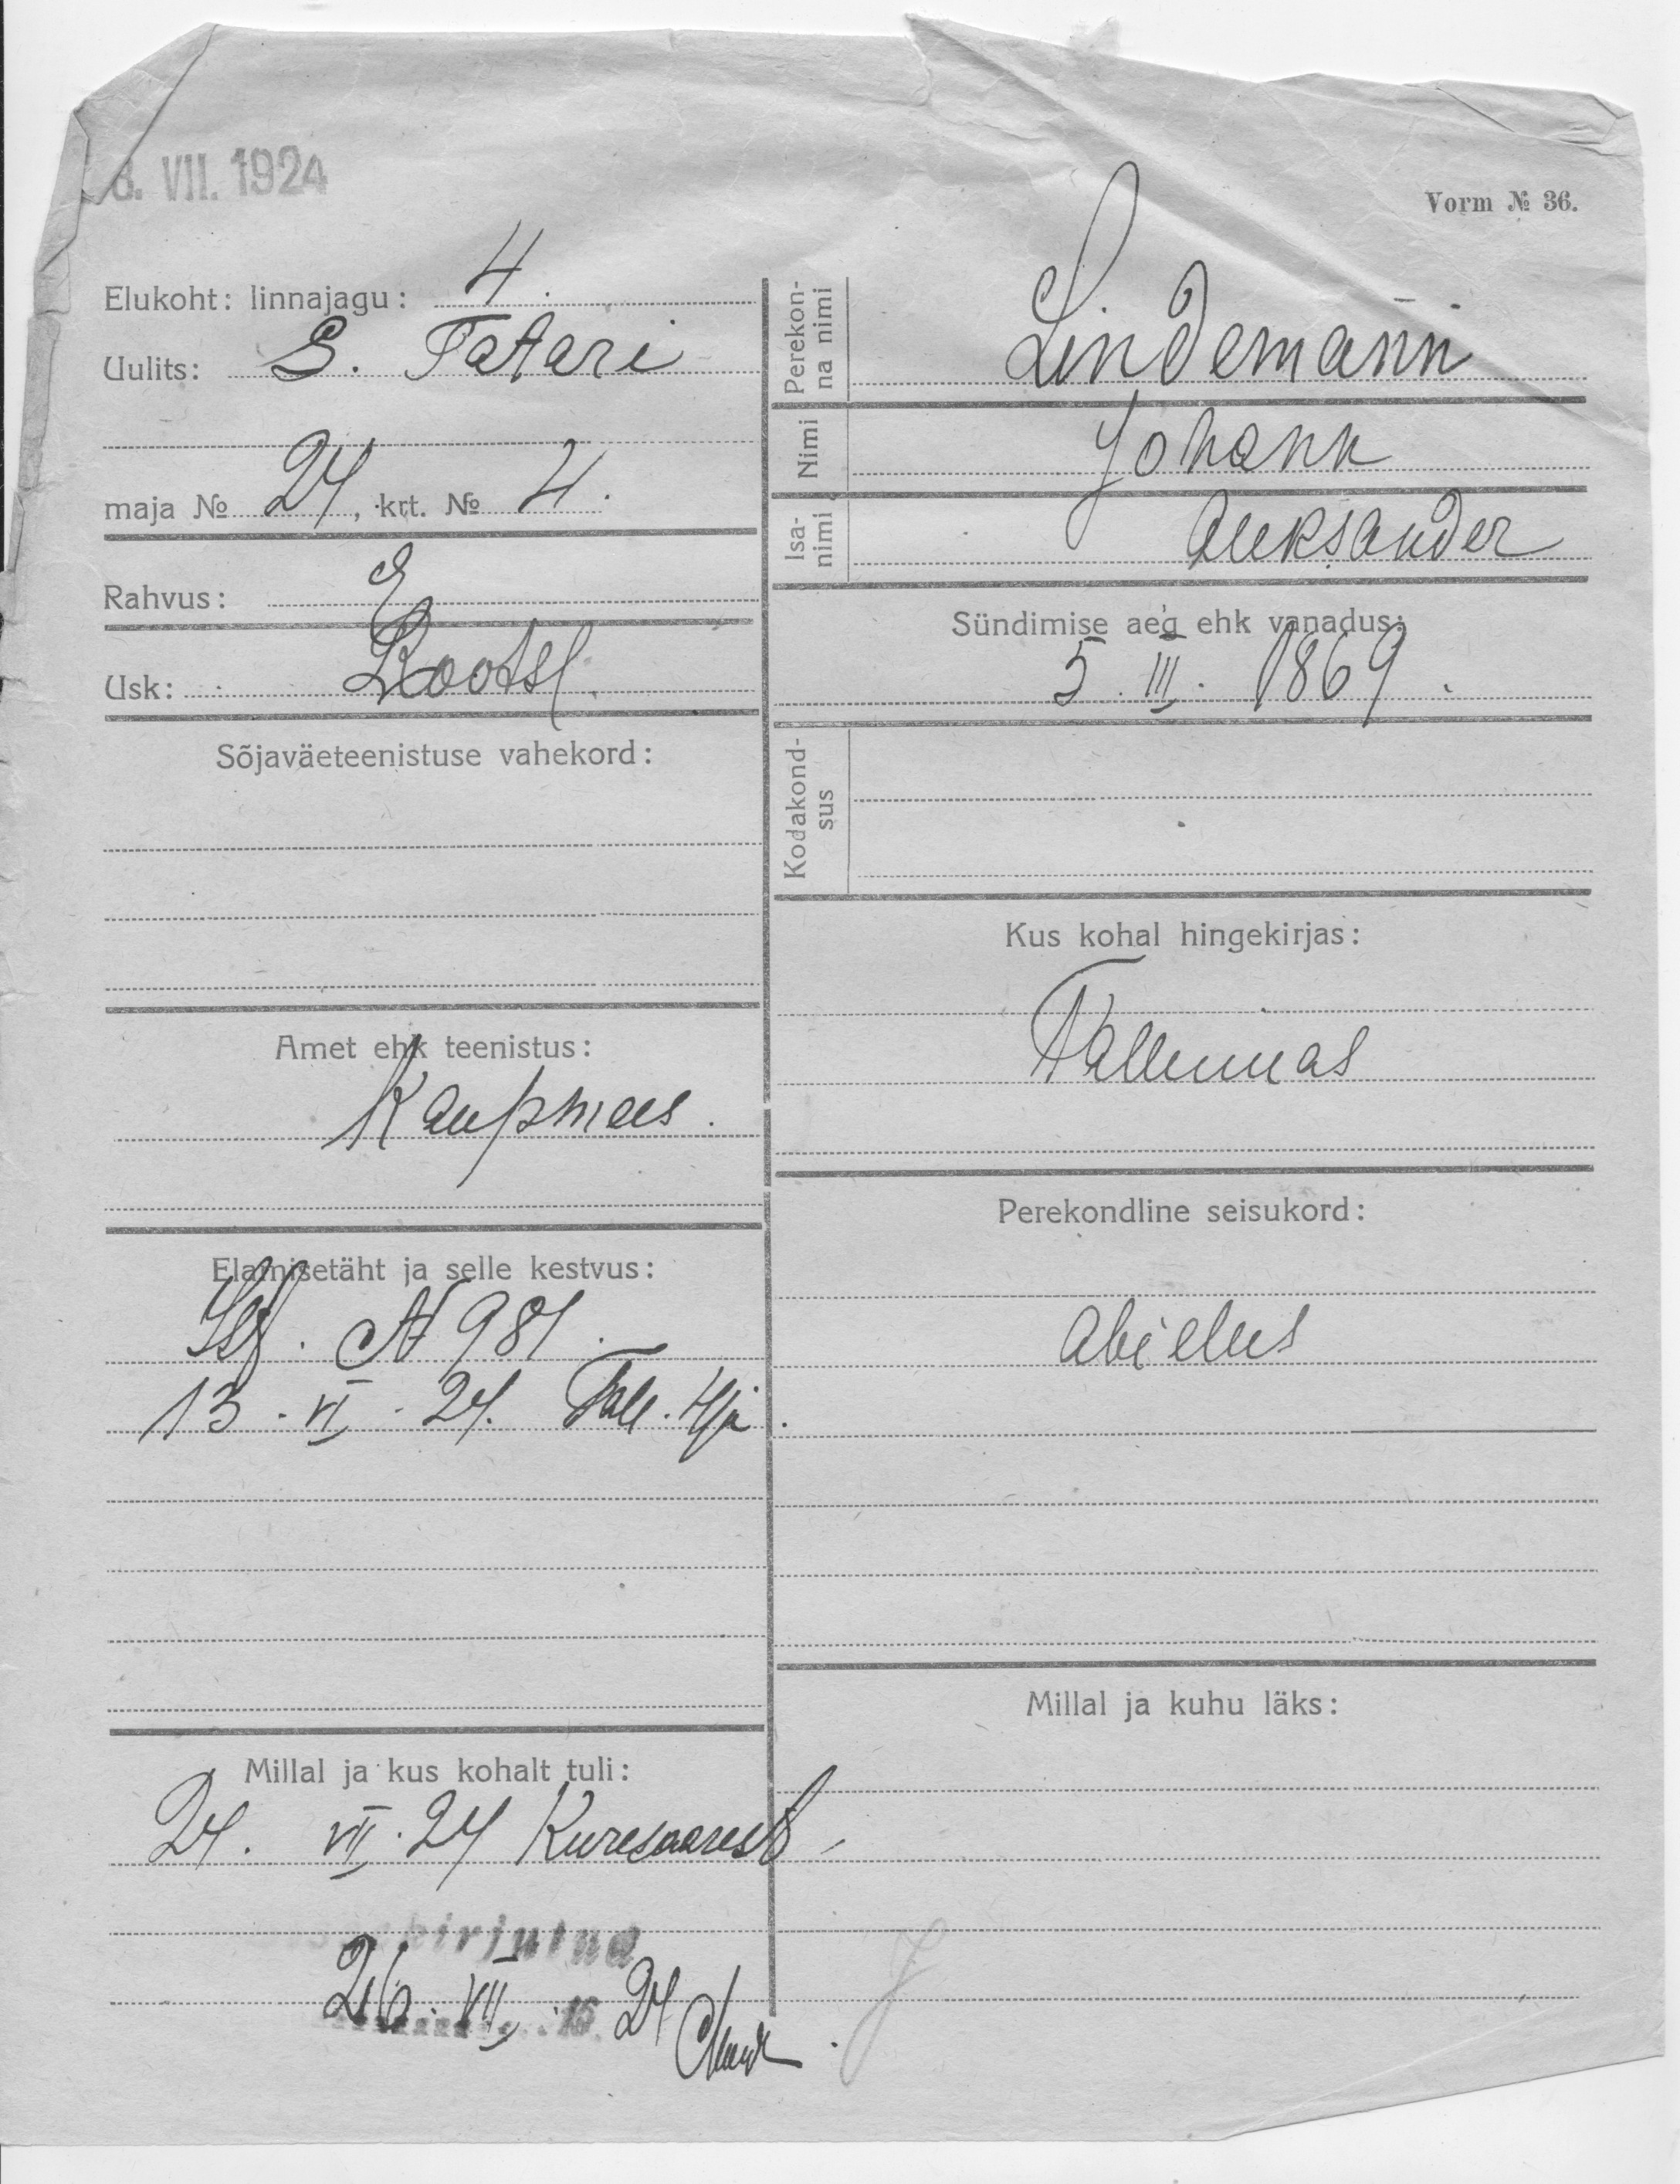 8. VII. 1924
Vorm № 36.
Elukoht: linnajagu: 4.
Uulits: S. Tatari
maja № 24, krt. № 4.
Rahvus: E
Usk: Lootsl.
Sõjaväeteenistuse vahekord:
Amet ehk teenistus:
Kaupmees.
Elamisetäht ja selle kestvus:
Isf. № 981.
13. VI. 24. Tall. 4 ja.
Millal ja kus kohalt tuli:
24. VII. 24 Kuresaarest
kirjutud
26. VII. 24
Perekonna nimi Lindemann
Nimi Johann
Isanimi Aleksander
Sündimise aeg ehk vanadus:
5. III. 1869.
Kodakondsus
Kus kohal hingekirjas:
Tallinnas
Perekondline seisukord:
abielus
Millal ja kuhu läks: